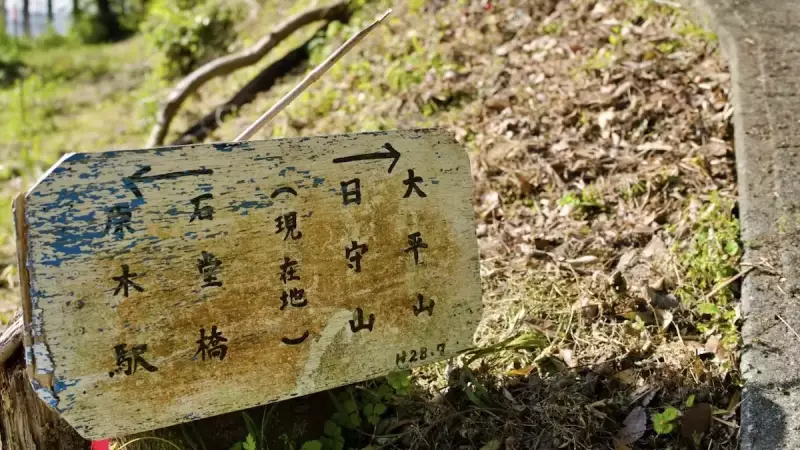 →
大平山
日守山
(現在地)
←
石堂橋
原木駅
H28.7